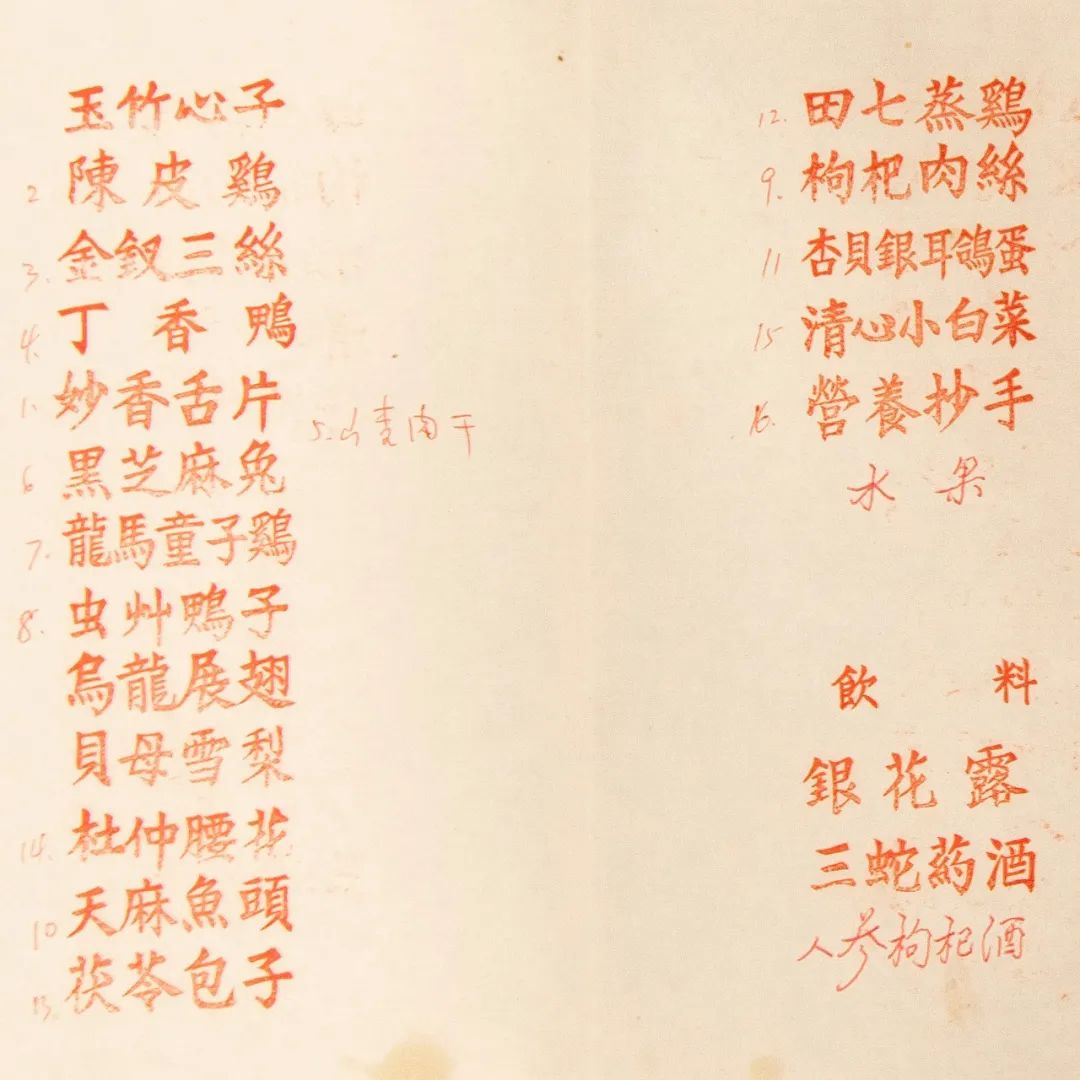 玉竹心子
2 陳皮鷄
3. 金釵三絲
4. 丁香鴨
1. 妙香舌片
5. 山查肉干
6 黑芝麻兔
7. 龍馬童子鷄
8. 虫艸鴨子
烏龍展翅
貝母雪梨
14. 杜仲腰花
10 天麻魚頭
13. 茯苓包子
12. 田七蒸鷄
9. 枸杞肉絲
11 杏貝銀耳鴿蛋
15 清心小白菜
16. 營養抄手
水果
飲料
銀花露
三蛇葯酒
人参枸杞酒